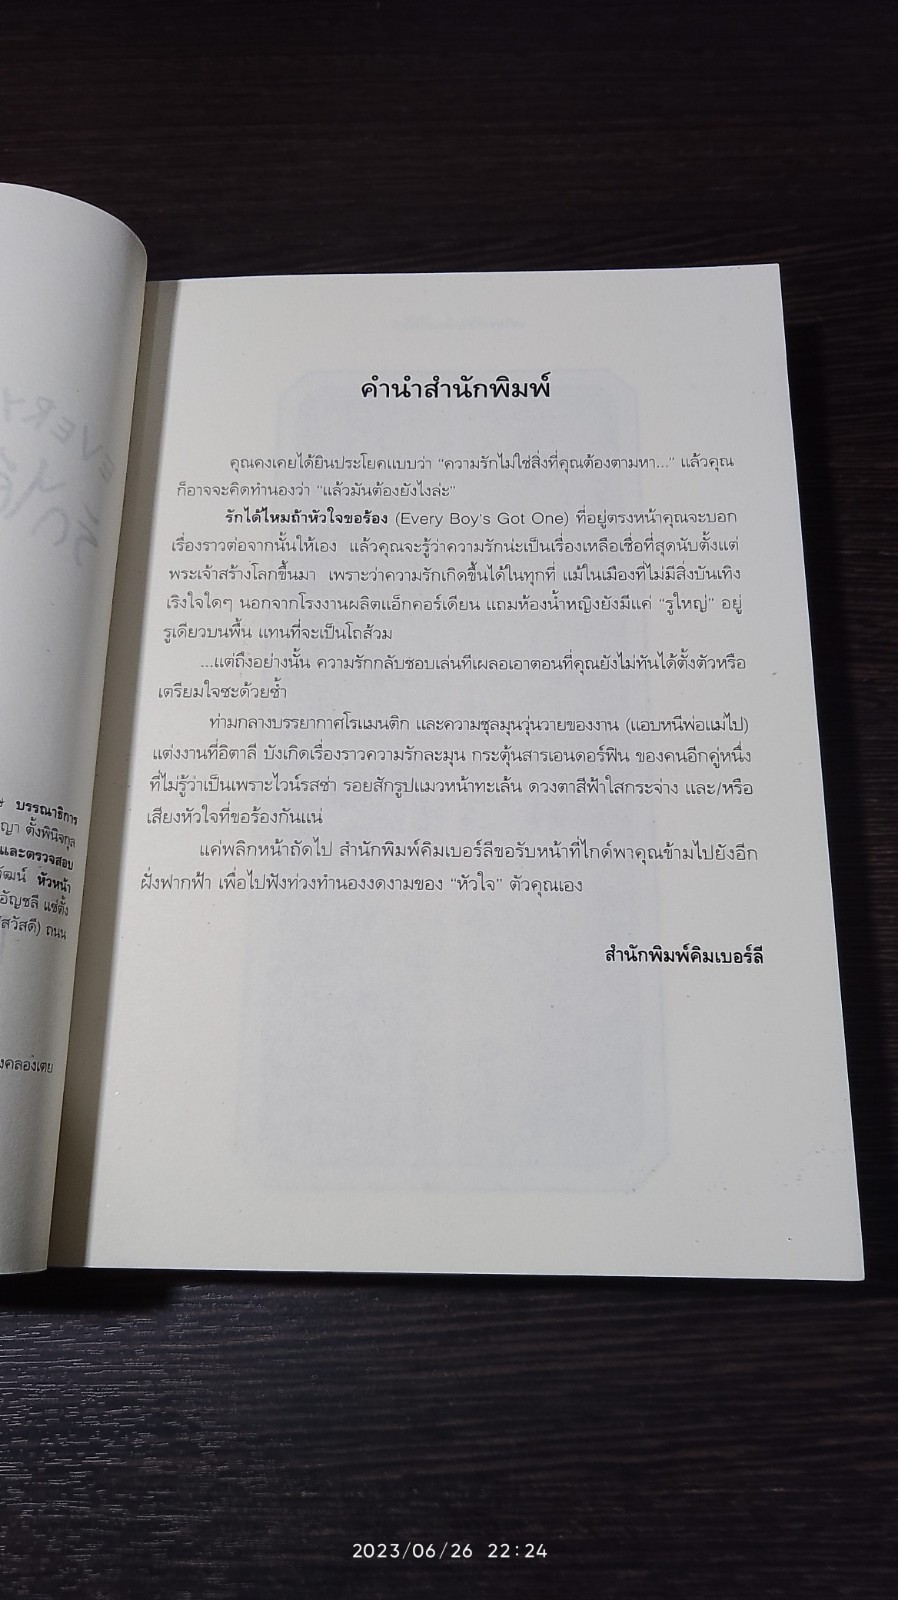 คำนำสำนักพิมพ์
คุณคงเคยได้ยินประโยคแบบว่า “ความรักไม่ใช่สิ่งที่คุณต้องตามหา...” แล้วคุณ
ก็อาจจะคิดทำนองว่า “แล้วมันต้องยังไงล่ะ”
รักได้ไหมถ้าหัวใจขอร้อง (Every Boy's Got One) ที่อยู่ตรงหน้าคุณจะบอก
เรื่องราวต่อจากนั้นให้เอง แล้วคุณจะรู้ว่าความรักน่ะเป็นเรื่องเหลือเชื่อที่สุดนับตั้งแต่
พระเจ้าสร้างโลกขึ้นมา เพราะว่าความรักเกิดขึ้นได้ในทุกที่ แม้ในเมืองที่ไม่มีสิ่งบันเทิง
เริงใจใดๆ นอกจากโรงงานผลิตแอ็กคอร์เดียน แถมห้องน้ำหญิงยังมีแค่ “รูใหญ่” อยู่
รูเดียวบนพื้น แทนที่จะเป็นโถส้วม
...แต่ถึงอย่างนั้น ความรักกลับชอบเล่นทีเผลอเอาตอนที่คุณยังไม่ทันได้ตั้งตัวหรือ
เตรียมใจซะด้วยซ้ำ
ท่ามกลางบรรยากาศโรแมนติก และความชุลมุนวุ่นวายของงาน (แอบหนีพ่อแม่ไป)
แต่งงานที่อิตาลี บังเกิดเรื่องราวความรักละมุน กระตุ้นสารเอนดอร์ฟิน ของคนอีกคู่หนึ่ง
ที่ไม่รู้ว่าเป็นเพราะไวน์รสซ่า รอยสักรูปแมวหน้าทะเล้น ดวงตาสีฟ้าใสกระจ่าง และ/หรือ
เสียงหัวใจที่ขอร้องกันแน่
แค่พลิกหน้าถัดไป สำนักพิมพ์คิมเบอร์ลีขอรับหน้าที่ไกด์พาคุณข้ามไปยังอีก
ฝั่งฟากฟ้า เพื่อไปฟังท่วงทำนองงดงามของ “หัวใจ” ตัวคุณเอง
สำนักพิมพ์คิมเบอร์ลี
บรรณาธิการ
ญา ตั้งพินิจกุล
และตรวจสอบ
วัฒน์ หัวหน้า
อัญชลี แซ่ตั้ง
สวัสดี) ถนน
งคลองเตย
2023/06/26 22:24